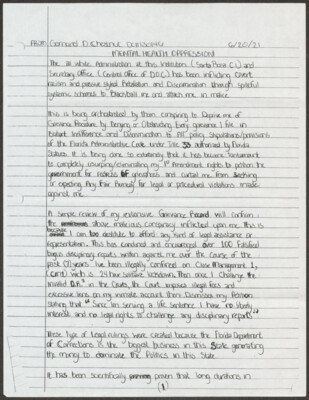 FROM: Gerrard D. Chestnut DC# 6/20/21
MENTAL HEALTH OPPRESSION
The all white Administration at this Institution (Santa Rosa C.I.) and
Secretary Office (Central Office of D.O.C) has been inflicting covert
racism and passive stylish Retaliation and Discrimination through spiteful
systemic schemes to Blackball me and attack me in malice.
this is being orchestrated by them conspiring to Deprive me of
Grievance Procedure by Denying or Obstructing Every grievance I file in
blatant Indifference and Discrimination to All policy stipulations/provisions
of the Florida Administrative Code under Title 33 authorized by Florida
Statues. It is being done so extensively that it has become tantamount
to completely usurping/eliminating my 1st Amendment rights to petition the
government for redress of grievances and curtail me from
or exposing Any their formally for legal or procedural violations made
against me.
A simple review of my extensive Grievance Record will confirm
the above malicious conspiracy inflicted upon me. This is
because I am too destitute to afford any kind of Legal Assistance or
representation. This has condoned and encouraged over 100 falsified
bogus disciplinary reports written against me over the cause of the
past 17 years I've been illegally confined on Close Management I,
(cm1) which is 24 hour solitaire lockdown. Then once I Challenge the
invalid D.R.'s in the Courts, the Court imposes illegal fees and
excessive liens on my inmate account then Dismisses my Petition
stating that "Since Im serving a life sentence I have no liberty
interest and no legal rights to challenge any disciplinary reports"
These type of Legal rulings were created because the Florida Department
of Corrections is the biggest business in this State generating
the money to dominate the Politics in this State.
It has been scientifically proven that long durations in
(1)